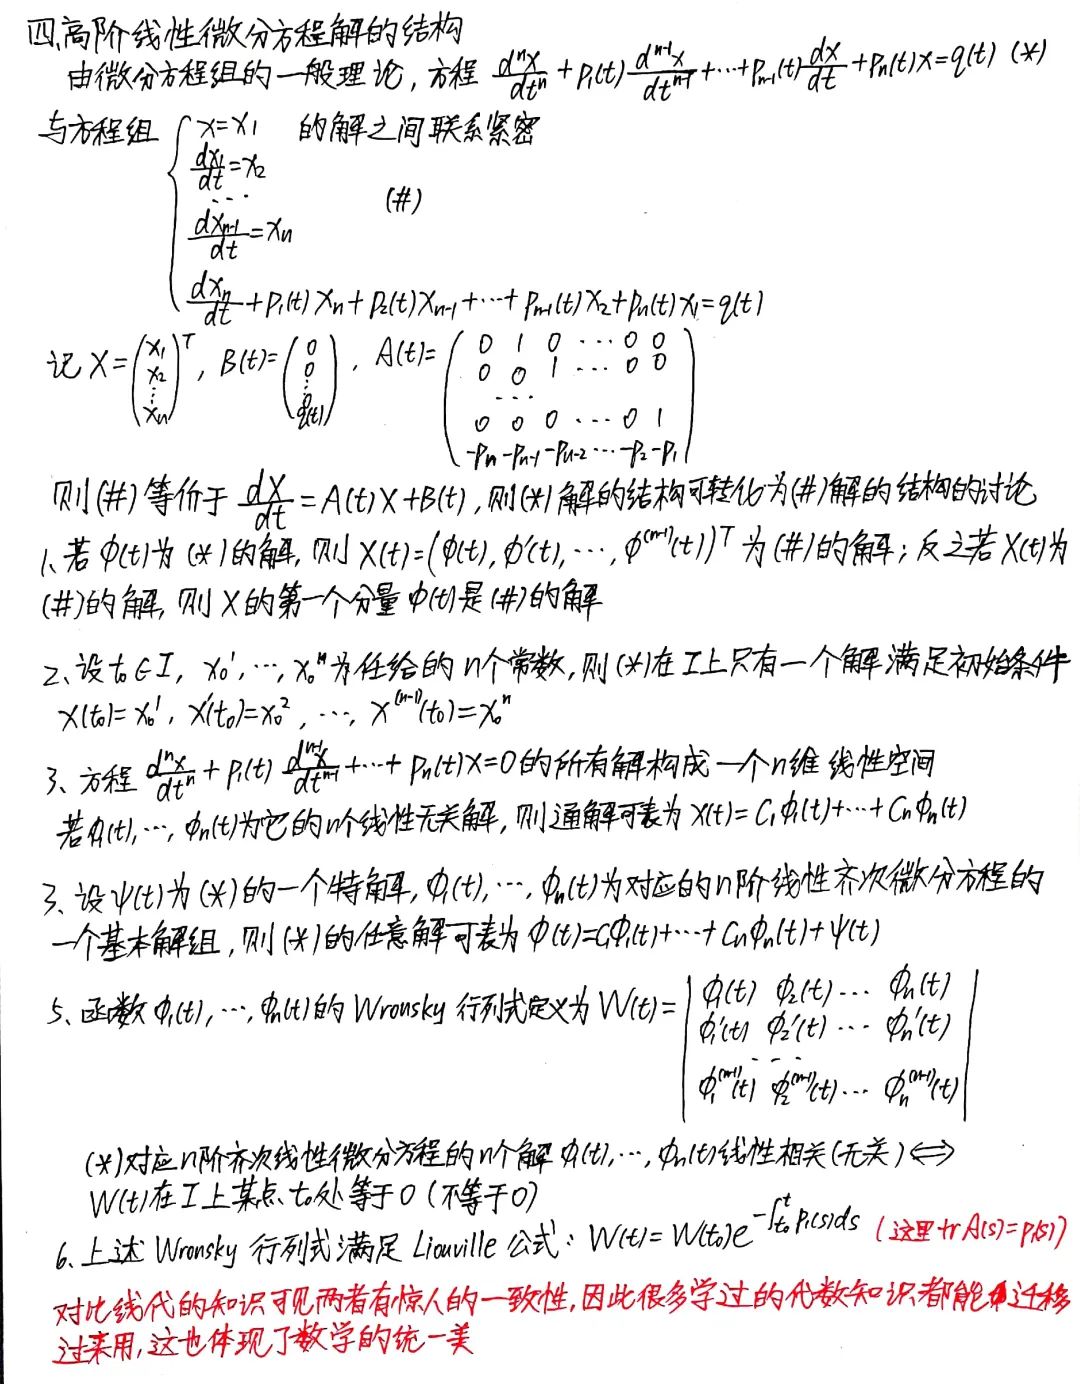 四、高阶线性微分方程解的结构
由微分方程组的一般理论,方程 dⁿx/dtⁿ + p₁(t) dⁿ⁻¹x/dtⁿ⁻¹ + ⋯ + pₙ₋₁(t) dx/dt + pₙ(t)x = q(t) (*)
与方程组 { x = x₁ 的解之间联系紧密
dx₁/dt = x₂
⋯
(#)
dxₙ₋₁/dt = xₙ
dxₙ/dt + p₁(t)xₙ + p₂(t)xₙ₋₁ + ⋯ + pₙ₋₁(t)x₂ + pₙ(t)x₁ = q(t)
记 X = (x₁ x₂ ⋮ xₙ)ᵀ, B(t) = (0 0 ⋮ q(t)), A(t) = ( 0 1 0 ⋯ 0 0
0 0 1 ⋯ 0 0
⋯
0 0 0 ⋯ 0 1
-pₙ -pₙ₋₁ -pₙ₋₂ ⋯ -p₂ -p₁ )
则(#)等价于 dX/dt = A(t)X + B(t), 则(*)解的结构可转化为(#)解的结构的讨论
1、若 φ(t)为(*)的解, 则 X(t) = (φ(t), φ'(t), ⋯, φ⁽ⁿ⁻¹⁾(t))ᵀ 为(#)的解; 反之若X(t)为
(#)的解, 则 X 的第一个分量 φ(t)是(#)的解
2、设 t₀∈I, x₀¹, ⋯, x₀ⁿ 为任给的 n个常数, 则(*)在I上只有一个解满足初始条件
x(t₀) = x₀¹, x'(t₀) = x₀², ⋯, x⁽ⁿ⁻¹⁾(t₀) = x₀ⁿ
3、方程 dⁿx/dtⁿ + p₁(t) dⁿ⁻¹x/dtⁿ⁻¹ + ⋯ + pₙ(t)x = 0的所有解构成一个n维线性空间
若φ₁(t), ⋯, φₙ(t)为它的n个线性无关解, 则通解可表为 x(t) = C₁φ₁(t) + ⋯ + Cₙφₙ(t)
3、设ψ(t)为(*)的一个特解, φ₁(t), ⋯, φₙ(t)为对应的n阶线性齐次微分方程的
一个基本解组, 则(*)的任意解可表为 φ(t) = C₁φ₁(t) + ⋯ + Cₙφₙ(t) + ψ(t)
5、函数 φ₁(t), ⋯, φₙ(t)的 Wronsky 行列式定义为 W(t) = | φ₁(t) φ₂(t) ⋯ φₙ(t)
φ₁'(t) φ₂'(t) ⋯ φₙ'(t)
⋯
φ₁⁽ⁿ⁻¹⁾(t) φ₂⁽ⁿ⁻¹⁾(t) ⋯ φₙ⁽ⁿ⁻¹⁾(t) |
(*)对应n阶齐次线性微分方程的n个解 φ₁(t), ⋯, φₙ(t)线性相关(无关) ⟺
W(t)在I上某点 t₀处等于0 (不等于0)
6、上述 Wronsky 行列式满足 Liouville 公式: W(t) = W(t₀)e^(-∫ₜ₀ᵗ p₁(s)ds) (这里 tr A(s) = p₁(s))
对比线代的知识可见两者有惊人的一致性, 因此很多学过的代数知识都能迁移
过来用, 这也体现了数学的统一美